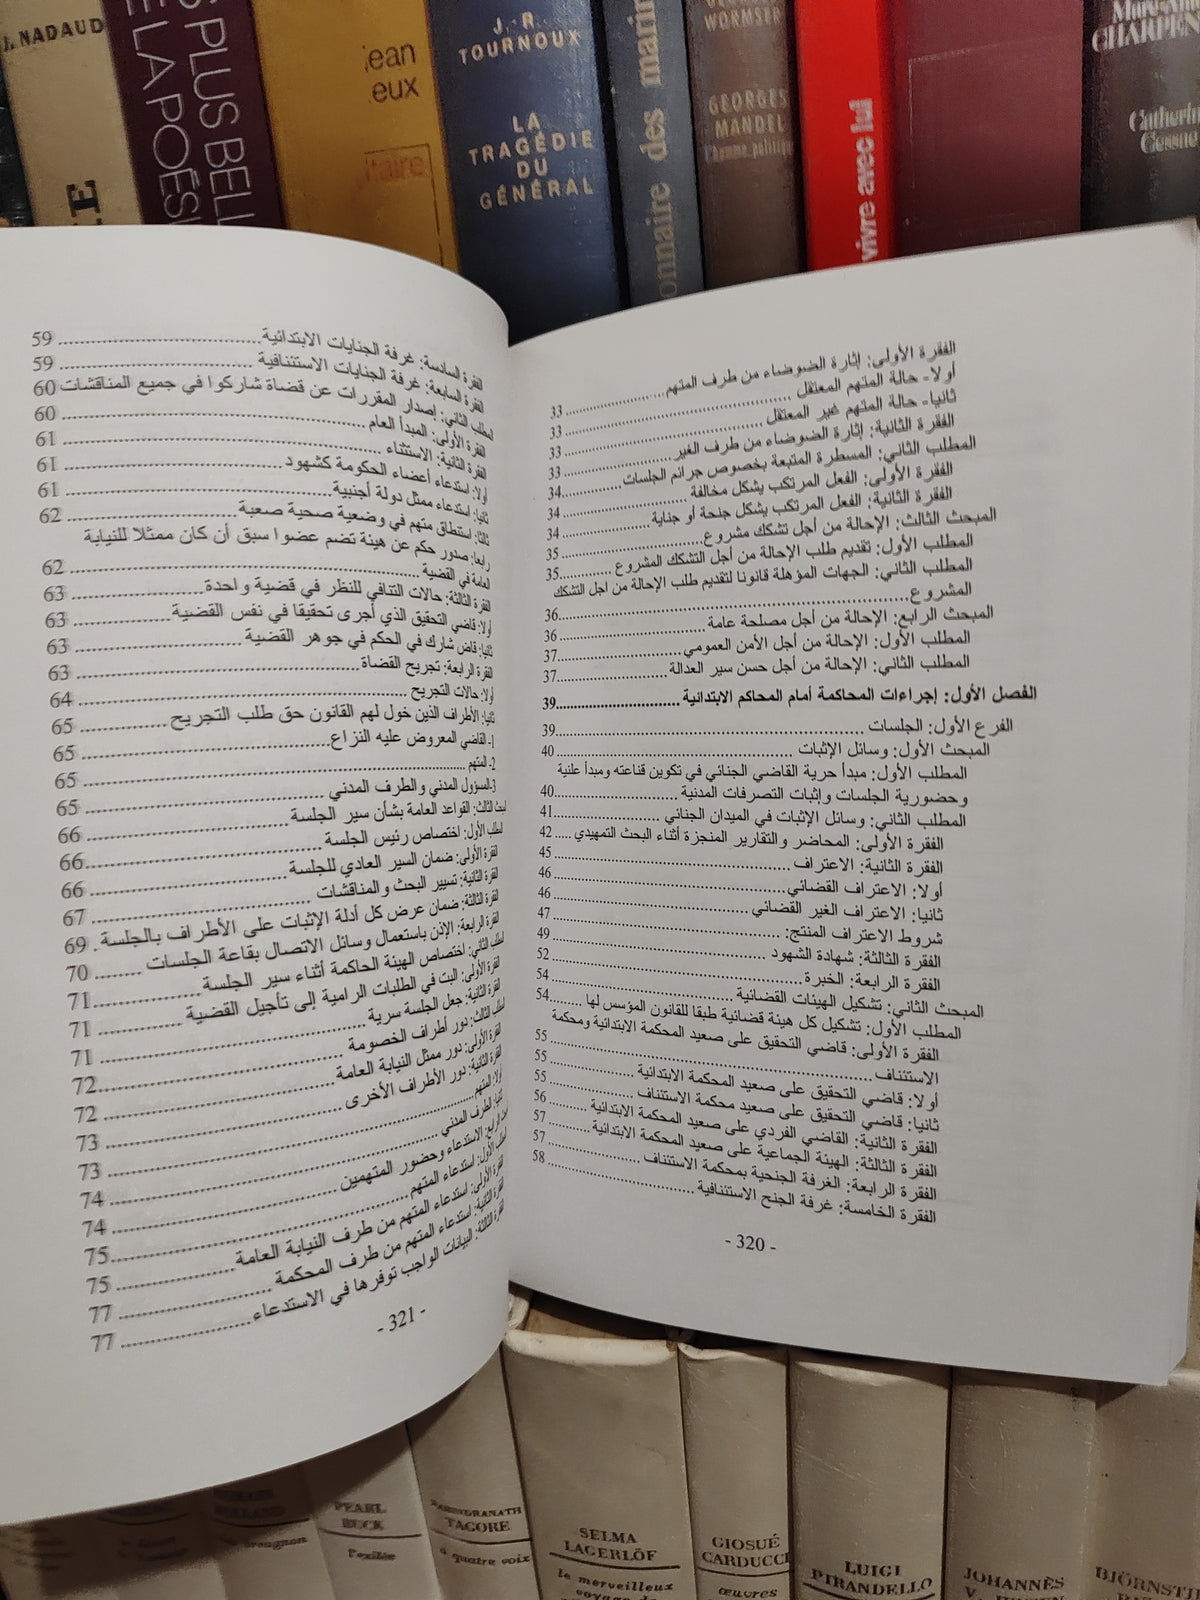 J. NADAUD
S PLUS BELL
E LA POÉSI
ean
eux
itaire
J.-R.
TOURNOUX
LA
TRAGÉDIE
DU
GÉNÉRAL
onnaire des marin
WORMSER
GEORGES
MANDEL
l'homme politique
vivre avec lui
CHARPEN
Catherin
Cessne
الفقرة الأولى: إثارة الضوضاء من طرف المتهم ........ 33
أولا- حالة المتهم المعتقل ........ 33
ثانيا- حالة المتهم غير المعتقل ........ 33
الفقرة الثانية: إثارة الضوضاء من طرف الغير ........ 33
المطلب الثاني: المسطرة المتبعة بخصوص جرائم الجلسات ........ 34
الفقرة الأولى: الفعل المرتكب يشكل مخالفة ........ 34
الفقرة الثانية: الفعل المرتكب يشكل جنحة أو جناية ........ 34
المبحث الثالث: الإحالة من أجل تشكك مشروع ........ 35
المطلب الأول: تقديم طلب الإحالة من أجل التشكك المشروع ........ 35
المطلب الثاني: الجهات المؤهلة قانونا لتقديم طلب الإحالة من اجل التشكك
المشروع ........ 36
المبحث الرابع: الإحالة من أجل مصلحة عامة ........ 36
المطلب الأول: الإحالة من أجل الأمن العمومي ........ 37
المطلب الثاني: الإحالة من أجل حسن سير العدالة ........ 37
الفصل الأول: إجراءات المحاكمة أمام المحاكم الابتدائية ........ 39
الفرع الأول: الجلسات ........ 39
المبحث الأول: وسائل الإثبات ........ 40
المطلب الأول: مبدأ حرية القاضي الجنائي في تكوين قناعته ومبدأ علنية
وحضورية الجلسات وإثبات التصرفات المدنية ........ 40
المطلب الثاني: وسائل الإثبات في الميدان الجنائي ........ 41
الفقرة الأولى: المحاضر والتقارير المنجزة أثناء البحث التمهيدي ..... 42
الفقرة الثانية: الاعتراف ........ 45
أولا: الاعتراف القضائي ........ 46
ثانيا: الاعتراف الغير القضائي ........ 46
شروط الاعتراف المنتج: ........ 47
الفقرة الثالثة: شهادة الشهود ........ 49
الفقرة الرابعة: الخبرة ........ 52
المبحث الثاني: تشكيل الهيئات القضائية ........ 54
المطلب الأول: تشكيل كل هيئة قضائية طبقا للقانون المؤسس لها ........ 54
الفقرة الأولى: قاضي التحقيق على صعيد المحكمة الابتدائية ومحكمة
الاستئناف ........ 55
أولا: قاضي التحقيق على صعيد المحكمة الابتدائية ........ 55
ثانيا: قاضي التحقيق على صعيد محكمة الاستئناف ........ 55
الفقرة الثانية: القاضي الفردي على صعيد المحكمة الابتدائية ........ 56
الفقرة الثالثة: الهيئة الجماعية على صعيد المحكمة الابتدائية ........ 57
الفقرة الرابعة: الغرفة الجنحية بمحكمة الاستئناف ........ 57
الفقرة الخامسة: غرفة الجنح الاستئنافية ........ 58
- 320 -
الفقرة السادسة: غرفة الجنايات الابتدائية ........ 59
الفقرة السابعة: غرفة الجنايات الاستئنافية ........ 59
المطلب الثاني: إصدار المقررات عن قضاة شاركوا في جميع المناقشات 60
الفقرة الأولى: المبدأ العام ........ 60
الفقرة الثانية: الاستثناء ........ 61
أولا: استدعاء أعضاء الحكومة كشهود ........ 61
ثانيا: استدعاء ممثل دولة أجنبية ........ 61
ثالثا: استنطاق متهم في وضعية صحية صعبة ........ 62
رابعا: صدور حكم عن هيئة تضم عضوا سبق أن كان ممثلا للنيابة
العامة في القضية ........ 62
الفقرة الثالثة: حالات التنافي للنظر في قضية واحدة ........ 63
أولا: قاضي التحقيق الذي أجرى تحقيقا في نفس القضية ........ 63
ثانيا: قاض شارك في الحكم في جوهر القضية ........ 63
الفقرة الرابعة: تجريح القضاة ........ 63
أولا: حالات التجريح ........ 64
ثانيا: الأطراف الذين خول لهم القانون حق طلب التجريح ........ 65
1- القاضي المعروض عليه النزاع ........ 65
2- المتهم ........ 65
3- المسؤول المدني والطرف المدني ........ 65
المبحث الثالث: القواعد العامة بشأن سير الجلسة ........ 66
المطلب الأول: اختصاص رئيس الجلسة ........ 66
الفقرة الأولى: ضمان السير العادي للجلسة ........ 66
الفقرة الثانية: تسيير البحث والمناقشات ........ 67
الفقرة الثالثة: ضمان عرض كل أدلة الإثبات على الأطراف بالجلسة . 69
الفقرة الرابعة: الإذن باستعمال وسائل الاتصال بقاعة الجلسات ........ 70
المطلب الثاني: اختصاص الهيئة الحاكمة أثناء سير الجلسة ........ 71
الفقرة الأولى: البت في الطلبات الرامية إلى تأجيل القضية ........ 71
الفقرة الثانية: جعل الجلسة سرية ........ 71
المطلب الثالث: دور أطراف الخصومة ........ 72
الفقرة الأولى: دور ممثل النيابة العامة ........ 72
الفقرة الثانية: دور الأطراف الأخرى ........ 73
أولا: المتهم ........ 73
ثانيا: الطرف المدني ........ 74
المبحث الرابع: الاستدعاء وحضور المتهمين ........ 74
المطلب الأول: استدعاء المتهم ........ 75
الفقرة الأولى: استدعاء المتهم من طرف النيابة العامة ........ 75
الفقرة الثانية: استدعاء المتهم من طرف المحكمة ........ 77
الفقرة الثالثة: البيانات الواجب توفرها في الاستدعاء ........ 77
- 321 -
PEARL
BUCK
l'exilée
RABINDRANATH
TAGORE
à quatre voix
SELMA
LAGERLÖF
le merveilleux
voyage de
GIOSUÉ
CARDUCCI
œuvres
LUIGI
PIRANDELLO
JOHANNÈS
BJÖRNSTJ